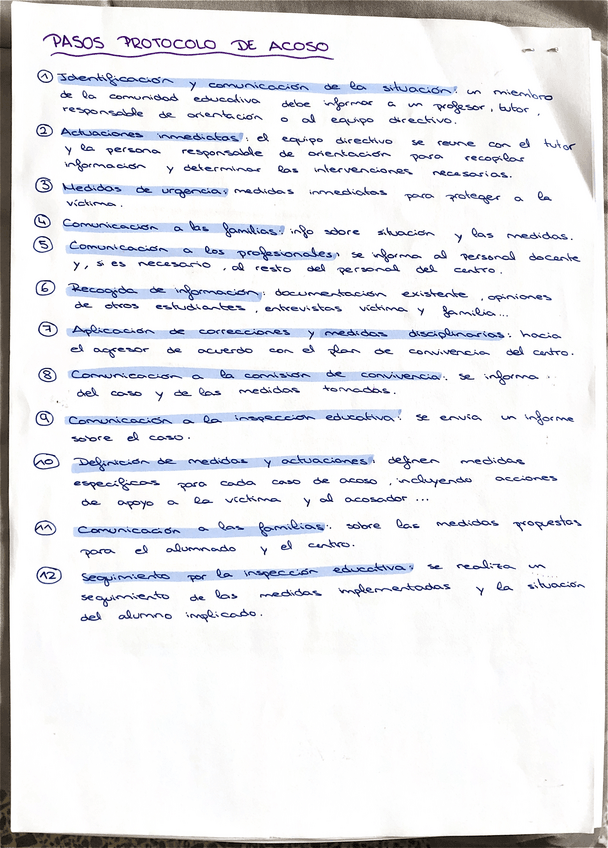 PASOS PROTOCOLO DE ACOSO
1 Identificación y comunicación de la situación: un miembro
de la comunidad educativa debe informar a un profesor, tutor,
responsable de orientación o al equipo directivo.
2 Actuaciones inmediatas: el equipo directivo se reune con el tutor
y la persona responsable de orientación para recopilar
información y determinar las intervenciones necesarias.
3 Medidas de urgencia: medidas inmediatas para proteger a la
víctima.
4 Comunicación a las familias: info sobre situación y las medidas.
5 Comunicación a los profesionales: se informa al personal docente
y, si es necesario, al resto del personal del centro.
6 Recogida de información: documentación existente, opiniones
de otros estudiantes, entrevistas víctima y familia...
7 Aplicación de correcciones y medidas disciplinarias: hacia
el agresor de acuerdo con el plan de convivencia del centro.
8 Comunicación a la comisión de convivencia: se informa
del caso y de las medidas tomadas.
9 Comunicación a la inspección educativa: se envía un informe
sobre el caso.
10 Definición de medidas y actuaciones: definen medidas
específicas para cada caso de acoso, incluyendo acciones
de apoyo a la víctima y al acosador...
11 Comunicación a las familias: sobre las medidas propuestas
para el alumnado y el centro.
12 Seguimiento por la inspección educativa: se realiza un
seguimiento de las medidas implementadas y la situación
del alumno implicado.